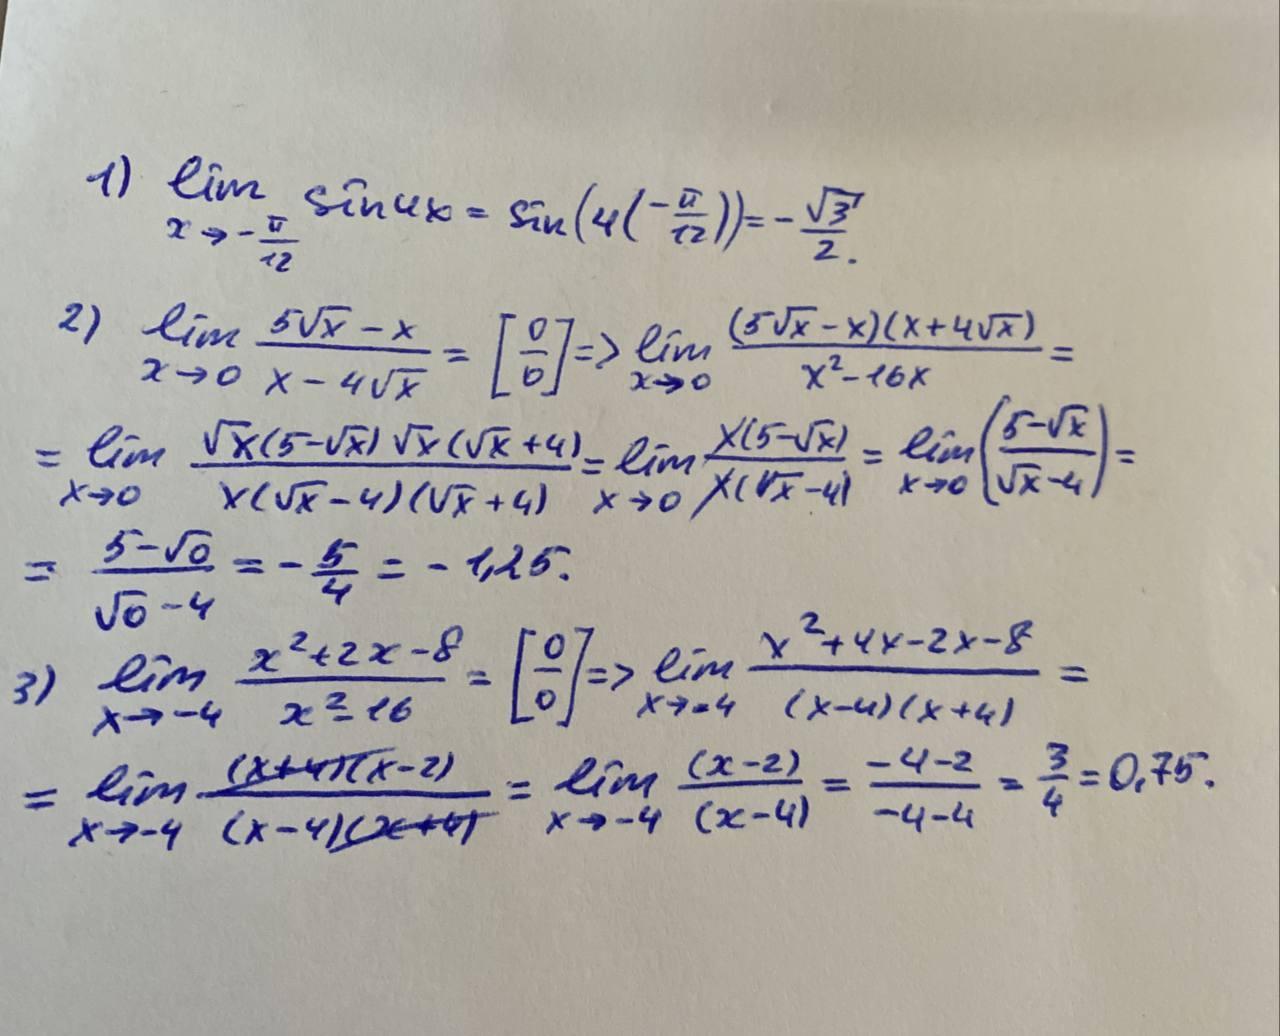 1) lim x→-π/12 sin4x = sin(4(-π/12)) = -√3/2.
2) lim x→0 (5√x - x)/(x - 4√x) = [0/0] => lim x→0 ((5√x - x)(x + 4√x))/(x² - 16x) =
= lim x→0 (√x(5-√x)√x(√x + 4))/(x(√x - 4)(√x + 4)) = lim x→0 (x(5-√x))/(x(√x - 4)) = lim x→0 ((5-√x)/(√x - 4)) =
= (5-√0)/(√0 - 4) = -5/4 = -1,25.
3) lim x→-4 (x² + 2x - 8)/(x² - 16) = [0/0] => lim x→-4 (x² + 4x - 2x - 8)/((x-4)(x+4)) =
= lim x→-4 ((x+4)(x-2))/((x-4)(x+4)) = lim x→-4 (x-2)/(x-4) = (-4-2)/(-4-4) = 3/4 = 0,75.